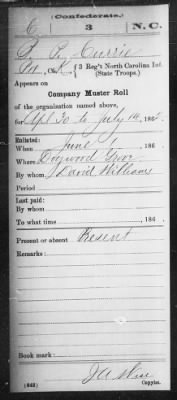 (Confederate.)
C 3 N.C.
Currie
Co. 3 Reg't North Carolina Inf.
(State Troops.)
Appears on
Company Muster Roll
of the organization named above,
for Apl 30 to July 14, 186
Enlisted:
When June 186
Where Dogwood Grov
By whom David Williams
Period
Last paid:
By whom
To what time 186
Present or absent Present
Remarks:
Book mark:
(642) Copyist.